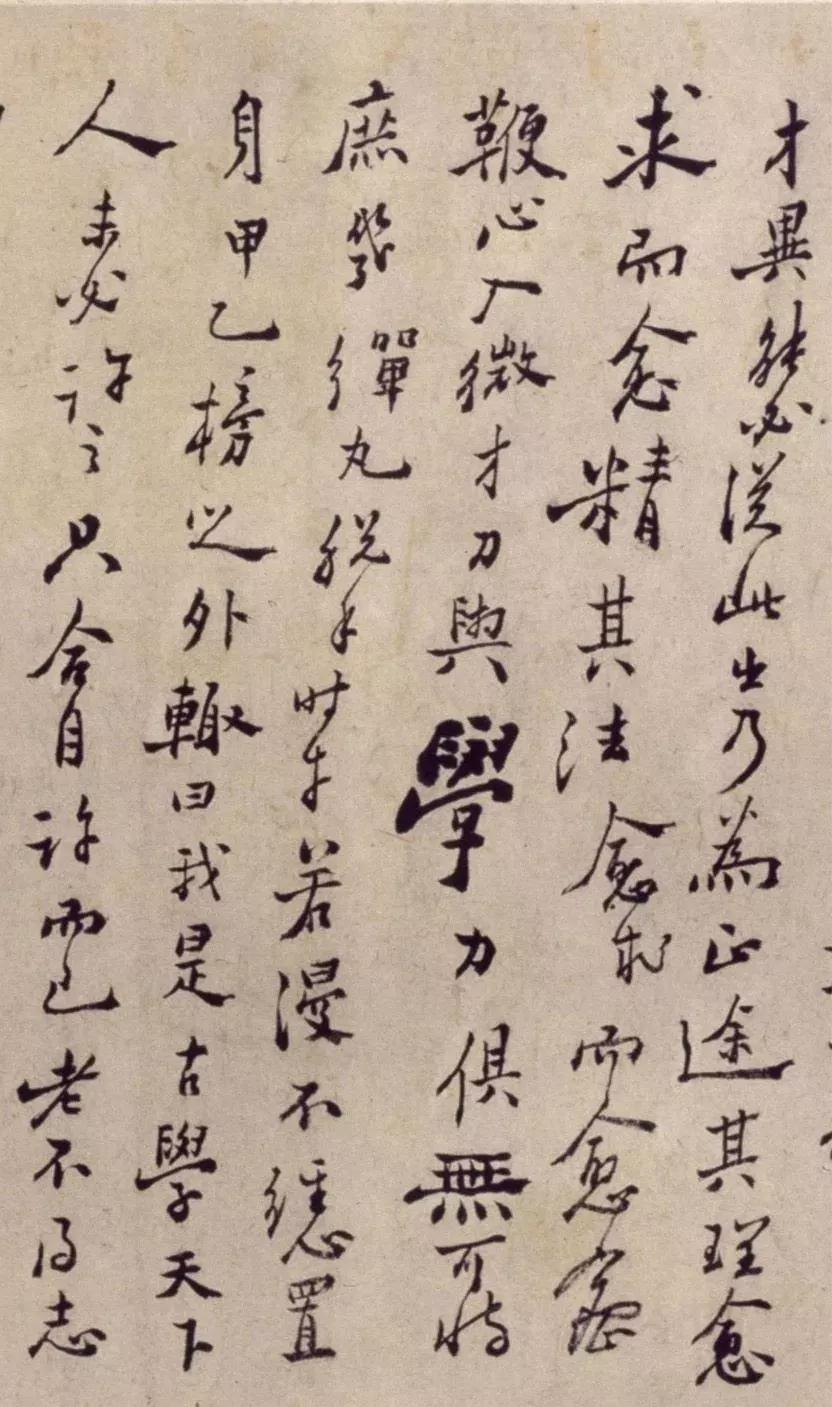 才異能必從此出乃為正途其理愈
求而愈精其法愈求而愈密
鞭心入微才力與學力俱無可恃
庶幾彈丸脫手時本若漫不經置
身甲乙榜之外輒曰我是古學天下
人未必許之只合自許而已老不得志